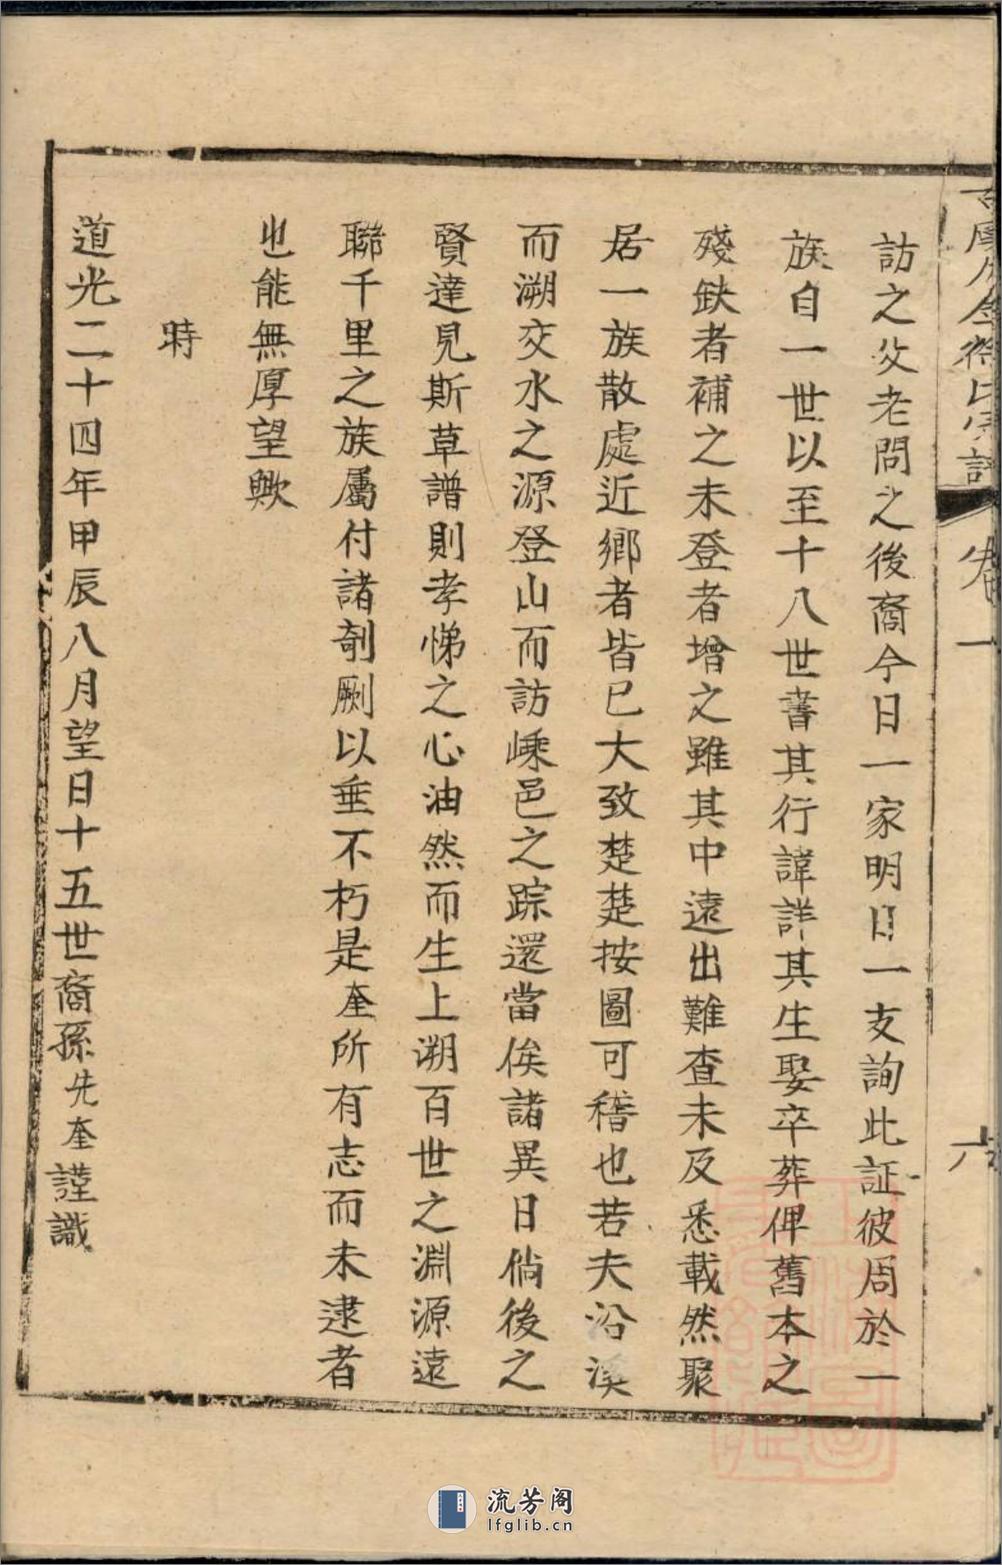 卷一
六
訪之父老問之後裔今日一家明日一支詢此証彼周於一
族自一世以至十八世書其行諱詳其生娶卒葬俾舊本之
殘缺者補之未登者增之雖其中遠出難查未及悉載然聚
居一族散處近鄉者皆已大致楚楚按圖可稽也若夫沿溪
而溯交水之源登山而訪嵊邑之踪還當俟諸異日倘後之
賢達見斯草譜則孝悌之心油然而生上溯百世之淵源遠
聯千里之族屬付諸剞劂以垂不朽是奎所有志而未逮者
也能無厚望歟
時
道光二十四年甲辰八月望日十五世裔孫先奎謹識
流芳阁
lfglib.cn